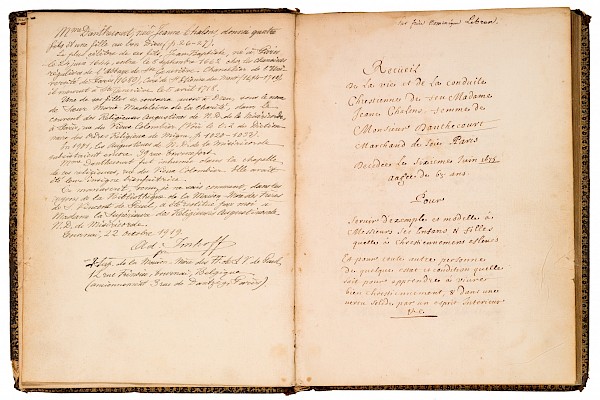 Mme Danthecourt, née Jeanne Chalons, donna quatre
fils et une fille au bon Dieu (p. 26-27).
Le plus célèbre de ses fils, Jean-Baptiste, né à Paris
le 24 juin 1644, entra le 8 septembre 1662 chez les chanoines
réguliers de l'Abbaye de Ste Geneviève. Chancelier de l'Uni-
versité de Paris (1680), Curé de St Etienne du Mont (1694-1719)
il mourut à Ste Geneviève le 5 avril 1718.
Une de ses filles se consacra aussi à Dieu, sous le nom
de Sœur Marie Madeleine de la Charité, dans le
couvent des Religieuses Augustines de N. D. de la Miséricorde
à Paris, rue du Vieux Colombier. (Voir t. 2 du Diction-
naire des Ordres Religieux de Migne, p. 1025-1032).
En 1901, les Augustines de N. D. de la Miséricorde
subsistaient encore, 39 rue Tournefort.
Mme Danthecourt fut inhumée dans la chapelle
de ces religieuses, rue du Vieux Colombier. Elle avait
été leur insigne bienfaitrice.
Ce manuscrit, venu, je ne sais comment, dans les
rayons de la Bibliothèque de la Maison Mère des Frères
de S. Vincent de Paul, a été restitué par moi à
Madame la Supérieure des Religieuses Augustines de
N. D. de Miséricorde.
Tournai, 22 octobre 1919.
Ad. Imhoff
de la Maison-Mère des FF. de S. V. de Paul,
12 rue Frinoise, Tournai, Belgique
(anciennement 3 rue de Dantzig, Paris)
Lebrun.
Recueil
De la vie et de la conduitte
Chrestienne de feu Madame
Jeane Chalons, femme de
Monsieur Danthecourt
Marchand de soies Paris
Decedée le sixiesme Juin 1677
aagée de 63 ans
Pour
Servir d'exemples et modelles à
Messieurs ses enfans & filles
quelle à chrestiennement eslevés
Et pour toute autres personnes
de quelques estat et condition quelles
soit pour apprendre à vivre
bien chrestiennement, & dans une
vertu solide par un esprit Interieur